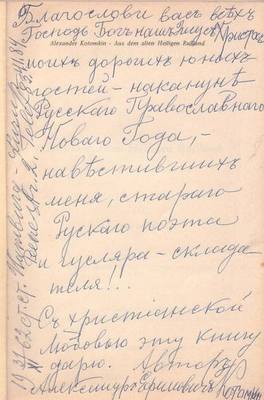 Благослови васъ всѣхъ
Господь Богъ нашъ Iисусъ Христосъ
Alexander Kotomkin - Aus dem alten Heiligen Rußland
моихъ дорогихъ юныхъ
гостей - наканунѣ
Русскаго Православнаго
Новаго Года, -
навѣстившихъ
меня, стараго
Рускаго поэта
и гусляра - склада-
теля!..
Съ христiанской
любовью эту книгу
дарю. Авторъ
Александръ Ефимовичъ Котомкин